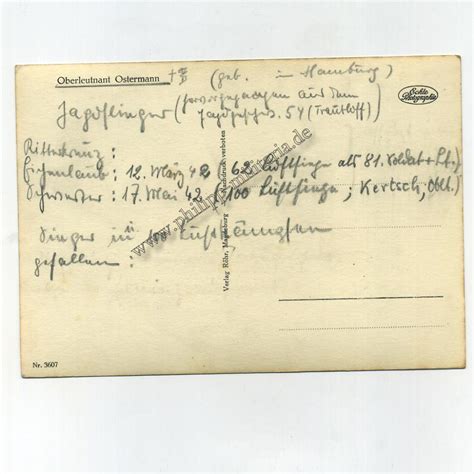 Oberleutnant Ostermann
(geb. in Hamburg)
Echte Photographie
Jagdflieger (hervorgegangen aus dem
Jagdgeschw. 54 (Trautloff)
Ritterkreuz :
Eichenlaub : 12. März 42 62 Luftsiege als 81. Soldat
Schwerter : 17. Mai 42 /100 Luftsiege ; Kertsch, Oblt.)
Sieger in Luftkämpfen
gefallen :
Verlag Röhr, Magdeburg Nachdruck verboten
www.philipp-militaria.de
Nr. 3607